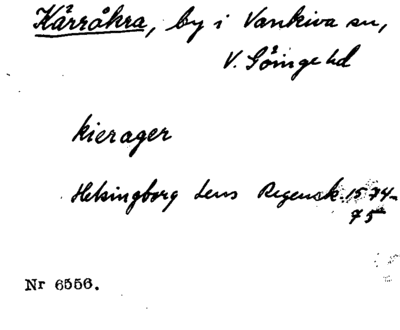 Kärråkra, by i Vankiva sn,
V. Göinge hd
kierager
Helsingborg Lens Regensk. 1574-
75
Nr 6556.